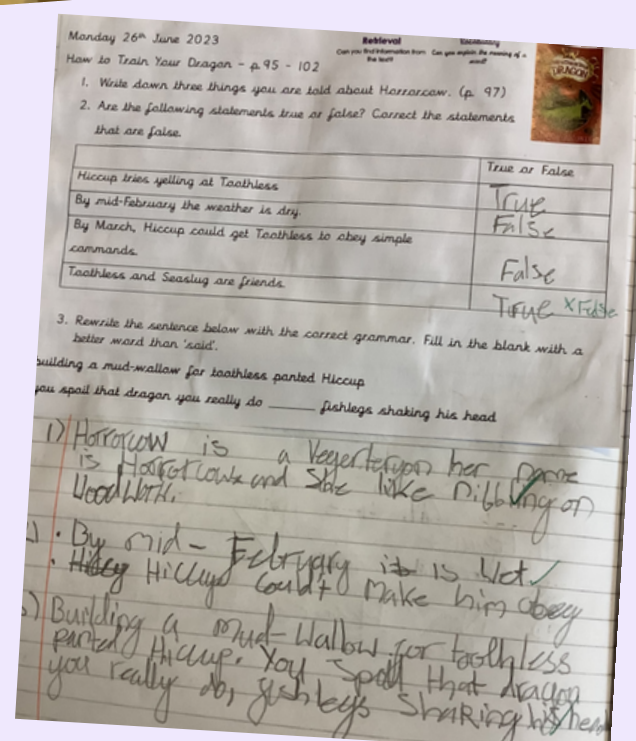 Monday 26th June 2023
Retrieval
Can you find information from the text?
Vocabulary
Can you explain the meaning of a word?
DRAGON
How to Train Your Dragon - p.95 - 102
1. Write down three things you are told about Horrorcow. (p. 97)
2. Are the following statements true or false? Correct the statements
that are false.
True or False
Hiccup tries yelling at Toothless
True
By mid-February the weather is dry.
False
By March, Hiccup could get Toothless to obey simple
commands.
False
Toothless and Seaslug are friends.
True x False
3. Rewrite the sentence below with the correct grammar. Fill in the blank with a
better word than 'said'.
building a mud-wallow for toothless panted Hiccup
you spoil that dragon you really do ______ fishlegs shaking his head
1) Horrorcow is a Vegertaryan her name
is Horrorcow and She like nibbling on
Woodwork.
• By mid- February it is Wet
• Hiccup Couldt make him obey
Building a mud-wallow for toothless
panted Hiccup. You Spoil that dragon
you really do, fishlegs Shaking his head